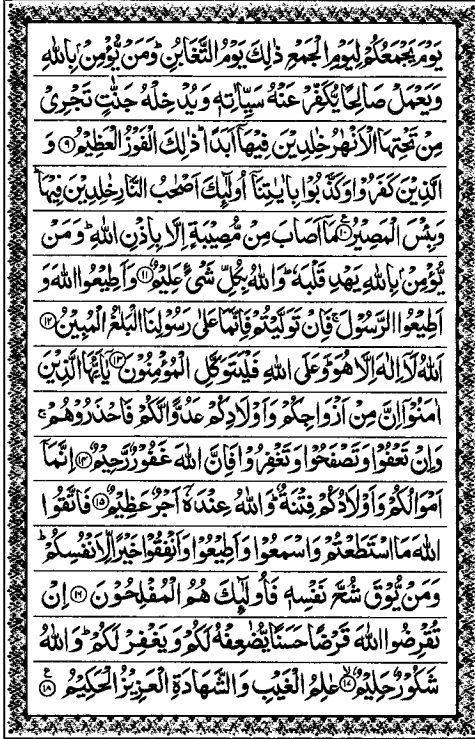 يَوْمَ يَجْمَعُكُمْ لِيَوْمِ الْجَمْعِ ذٰلِكَ يَوْمُ التَّغَابُنِ ؕ وَمَنْ يُّؤْمِنْۢ بِاللّٰهِ
وَيَعْمَلْ صَالِحًا يُّكَفِّرْ عَنْهُ سَيِّاٰتِهٖ وَيُدْخِلْهُ جَنّٰتٍ تَجْرِيْ
مِنْ تَحْتِهَا الْاَنْهٰرُ خٰلِدِيْنَ فِيْهَاۤ اَبَدًا ؕ ذٰلِكَ الْفَوْزُ الْعَظِيْمُ ۹ وَ
الَّذِيْنَ كَفَرُوْا وَكَذَّبُوْا بِاٰيٰتِنَاۤ اُولٰٓئِكَ اَصْحٰبُ النَّارِ خٰلِدِيْنَ فِيْهَا ؕ
وَبِئْسَ الْمَصِيْرُ ۱۰ مَاۤ اَصَابَ مِنْ مُّصِيْبَةٍ اِلَّا بِاِذْنِ اللّٰهِ ؕ وَمَنْ
يُّؤْمِنْۢ بِاللّٰهِ يَهْدِ قَلْبَهٗ ؕ وَاللّٰهُ بِكُلِّ شَيْءٍ عَلِيْمٌ ۱۱ وَاَطِيْعُوا اللّٰهَ وَ
اَطِيْعُوا الرَّسُوْلَ ۚ فَاِنْ تَوَلَّيْتُمْ فَاِنَّمَا عَلٰى رَسُوْلِنَا الْبَلٰغُ الْمُبِيْنُ ۱۲
اَللّٰهُ لَاۤ اِلٰهَ اِلَّا هُوَ ؕ وَعَلَى اللّٰهِ فَلْيَتَوَكَّلِ الْمُؤْمِنُوْنَ ۱۳ يٰۤاَيُّهَا الَّذِيْنَ
اٰمَنُوْۤا اِنَّ مِنْ اَزْوَاجِكُمْ وَاَوْلَادِكُمْ عَدُوًّا لَّكُمْ فَاحْذَرُوْهُمْ ۚ
وَاِنْ تَعْفُوْا وَتَصْفَحُوْا وَتَغْفِرُوْا فَاِنَّ اللّٰهَ غَفُوْرٌ رَّحِيْمٌ ۱۴ اِنَّمَاۤ
اَمْوَالُكُمْ وَاَوْلَادُكُمْ فِتْنَةٌ ؕ وَاللّٰهُ عِنْدَهٗۤ اَجْرٌ عَظِيْمٌ ۱۵ فَاتَّقُوا
اللّٰهَ مَا اسْتَطَعْتُمْ وَاسْمَعُوْا وَاَطِيْعُوْا وَاَنْفِقُوْا خَيْرًا لِّاَنْفُسِكُمْ ؕ
وَمَنْ يُّوْقَ شُحَّ نَفْسِهٖ فَاُولٰٓئِكَ هُمُ الْمُفْلِحُوْنَ ۱۶ اِنْ
تُقْرِضُوا اللّٰهَ قَرْضًا حَسَنًا يُّضٰعِفْهُ لَكُمْ وَيَغْفِرْ لَكُمْ ؕ وَاللّٰهُ
شَكُوْرٌ حَلِيْمٌ ۱۷ ۙ عٰلِمُ الْغَيْبِ وَالشَّهَادَةِ الْعَزِيْزُ الْحَكِيْمُ ۱۸ ع